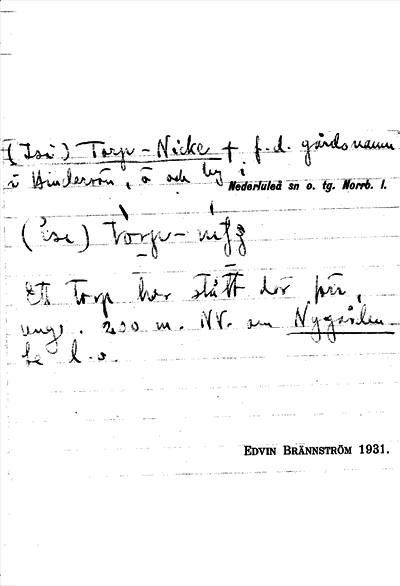 (Isi) Torp-Nicke + f.d. gårdsnamn
i Hindersön, ö och by i Nederluleå sn o. tg. Norrb. l.
Ett torp har stått där förr,
ungf. 200 m. NV. om Nygården
se d.o.
EDVIN BRÄNNSTRÖM 1931.